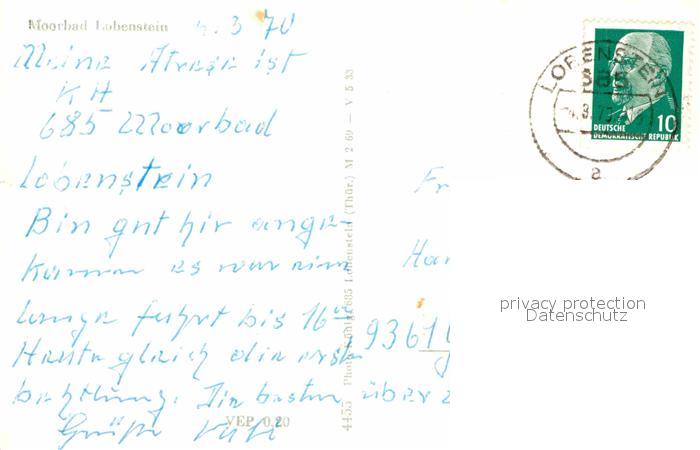 Moorbad Lobenstein
4.3.70
Meine Atrese ist
KH
685 Moorbad
Lobenstein
Bin gut hir ange-
kommen es war eine
lange fahrt bis 16
Heute gleich die erste
behtlung. Die besten
Grüße
VEP 0,20
4455 685 Lobenstein (Thür.) M 2 69 — V 5 33
LOBENSTEIN
685
a
10
DEUTSCHE
DEMOKRATISCHE REPUBLIK
Fr
Har
9361
über
privacy protection
Datenschutz